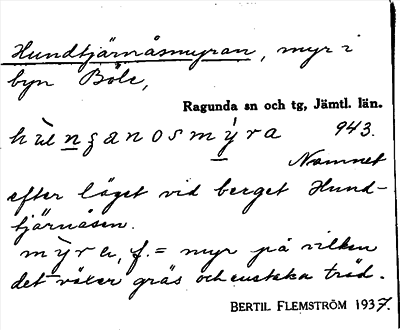 Hundtjärnåsmyran, myr i
byn Böle,
Ragunda sn och tg, Jämtl. län.
943.
Namnet
efter läget vid berget Hund-
tjärnåsen.
f. = myr på vilken
det växer gräs och enstaka träd.
BERTIL FLEMSTRÖM 1937.